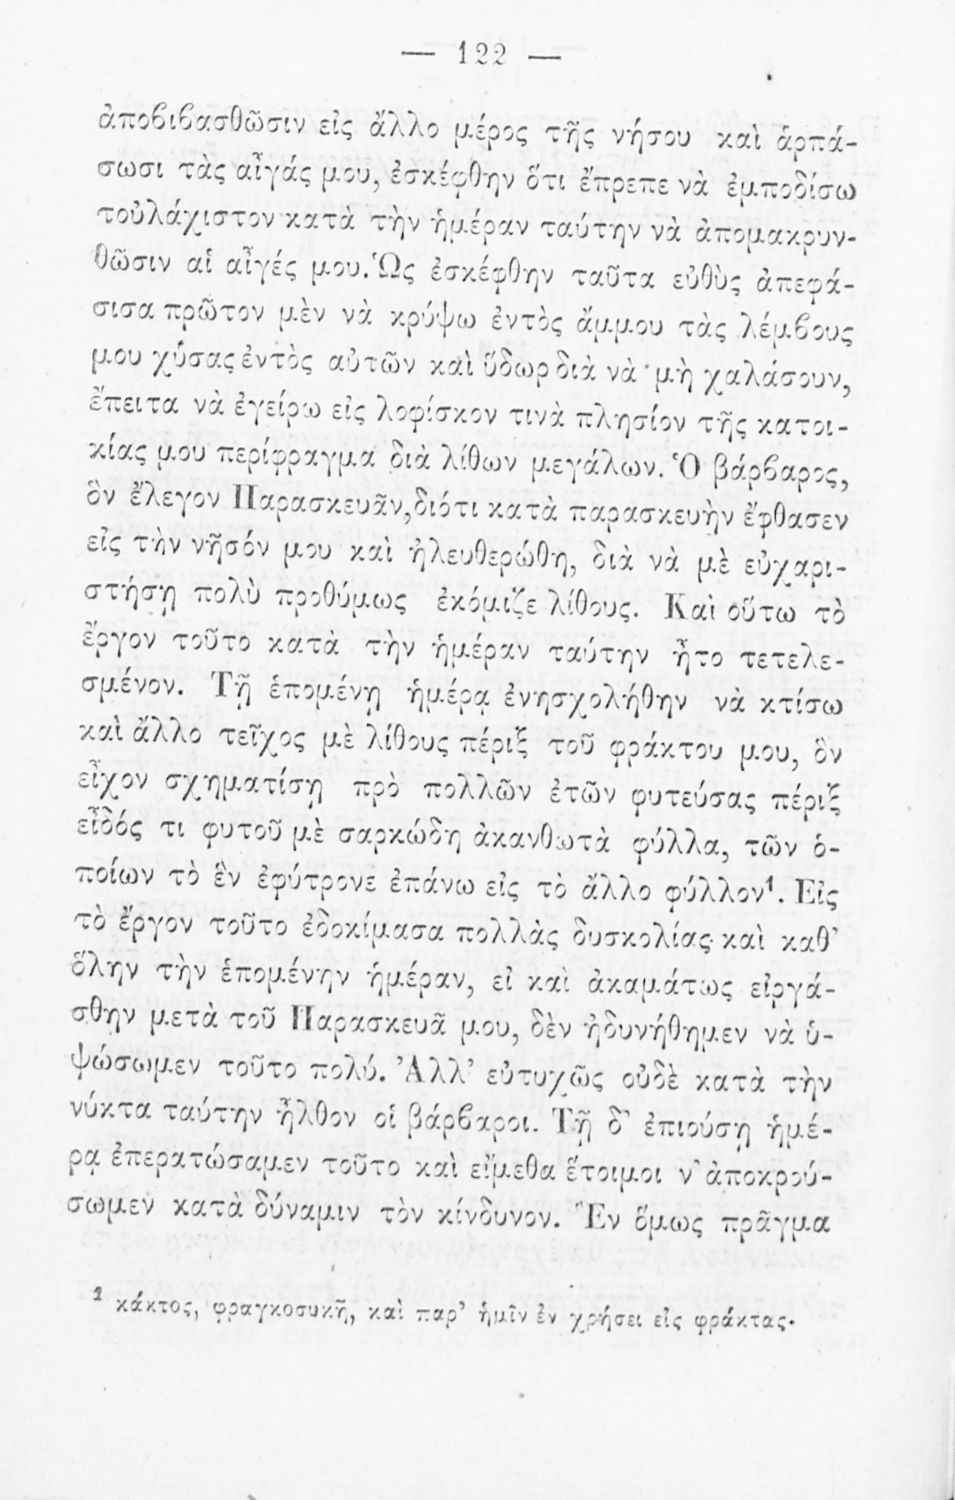 — 122 —
ἀποβιβασθῶσιν εἰς ἄλλο μέρος τῆς νήσου καὶ ἁρπά-
σωσι τὰς αἶγάς μου, ἐσκέφθην ὅτι ἔπρεπε νὰ ἐμποδίσω
τοὐλάχιστον κατὰ τὴν ἡμέραν ταύτην νὰ ἀπομακρυν-
θῶσιν αἱ αἶγές μου. Ὡς ἐσκέφθην ταῦτα εὐθὺς ἀπεφά-
σισα πρῶτον μὲν νὰ κρύψω ἐντὸς ἄμμου τὰς λέμβους
μου χύσας ἐντὸς αὐτῶν καὶ ὕδωρ διὰ νὰ μὴ χαλάσουν,
ἔπειτα νὰ ἐγείρω εἰς λοφίσκον τινὰ πλησίον τῆς κατοι-
κίας μου περίφραγμα διὰ λίθων μεγάλων. Ὁ βάρβαρος,
ὃν ἔλεγον Παρασκευᾶν, διότι κατὰ παρασκευὴν ἔφθασεν
εἰς τὴν νῆσόν μου καὶ ἠλευθερώθη, διὰ νὰ μὲ εὐχαρι-
στήσῃ πολὺ προθύμως ἐκόμιζε λίθους. Καὶ οὕτω τὸ
ἔργον τοῦτο κατὰ τὴν ἡμέραν ταύτην ἦτο τετελε-
σμένον. Τῇ ἑπομένῃ ἡμέρᾳ ἐνησχολήθην νὰ κτίσω
καὶ ἄλλο τεῖχος μὲ λίθους πέριξ τοῦ φράκτου μου, ὃν
εἶχον σχηματίσῃ πρὸ πολλῶν ἐτῶν φυτεύσας πέριξ
εἶδός τι φυτοῦ μὲ σαρκώδη ἀκανθωτὰ φύλλα, τῶν ὁ-
ποίων τὸ ἓν ἐφύτρονε ἐπάνω εἰς τὸ ἄλλο φύλλον¹. Εἰς
τὸ ἔργον τοῦτο ἐδοκίμασα πολλὰς δυσκολίας καὶ καθ’
ὅλην τὴν ἑπομένην ἡμέραν, εἰ καὶ ἀκαμάτως εἰργά-
σθην μετὰ τοῦ Παρασκευᾶ μου, δὲν ἠδυνήθημεν νὰ ὑ-
ψώσωμεν τοῦτο πολύ. Ἀλλ’ εὐτυχῶς οὐδὲ κατὰ τὴν
νύκτα ταύτην ἦλθον οἱ βάρβαροι. Τῇ δ’ ἐπιούσῃ ἡμέ-
ρᾳ ἐπερατώσαμεν τοῦτο καὶ εἴμεθα ἕτοιμοι ν’ ἀποκρού-
σωμεν κατὰ δύναμιν τὸν κίνδυνον. Ἓν ὅμως πρᾶγμα
¹ κάκτος, φραγκοσυκῆ, καὶ παρ’ ἡμῖν ἐν χρήσει εἰς φράκτας.